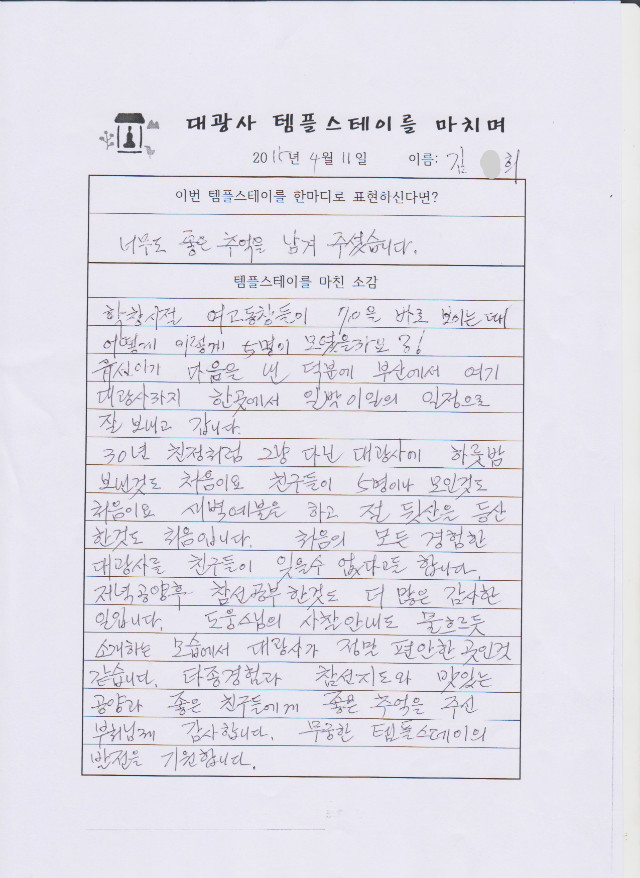 대광사 템플스테이를 마치며
2015년 4월 11일 이름: 김 희
이번 템플스테이를 한마디로 표현하신다면?
너무도 좋은 추억을 남겨 주셨습니다.
템플스테이를 마친 소감
학창시절 여고동창들이 70을 바로 보이는 때
어떻게 이렇게 5명이 모였을까요
마음을 낸 덕분에 부산에서 여기
대광사까지 한곳에서 일박이일의 일정으로
잘 보내고 갑니다.
30년 친정처럼 그냥 다닌 대광사에 하룻밤
보낸것도 처음이요 친구들이 5명이나 모인것도
처음이요 새벽예불을 하고 절 뒷산을 등산
한것도 처음입니다. 처음의 모든 경험한
대광사를 친구들이 잊을수 없다고들 합니다.
저녁공양후 참선공부한것도 더 많은 감사한
일입니다. 도웅스님의 사찰안내도 물흐르듯
소개하는 모습에서 대광사가 정말 편안한 곳인것
같습니다. 다종경험과 참선지도와 맛있는
공양과 좋은 친구들에게 좋은 추억을 주신
부처님께 감사합니다. 무궁한 템플스테이의
발전을 기원합니다.